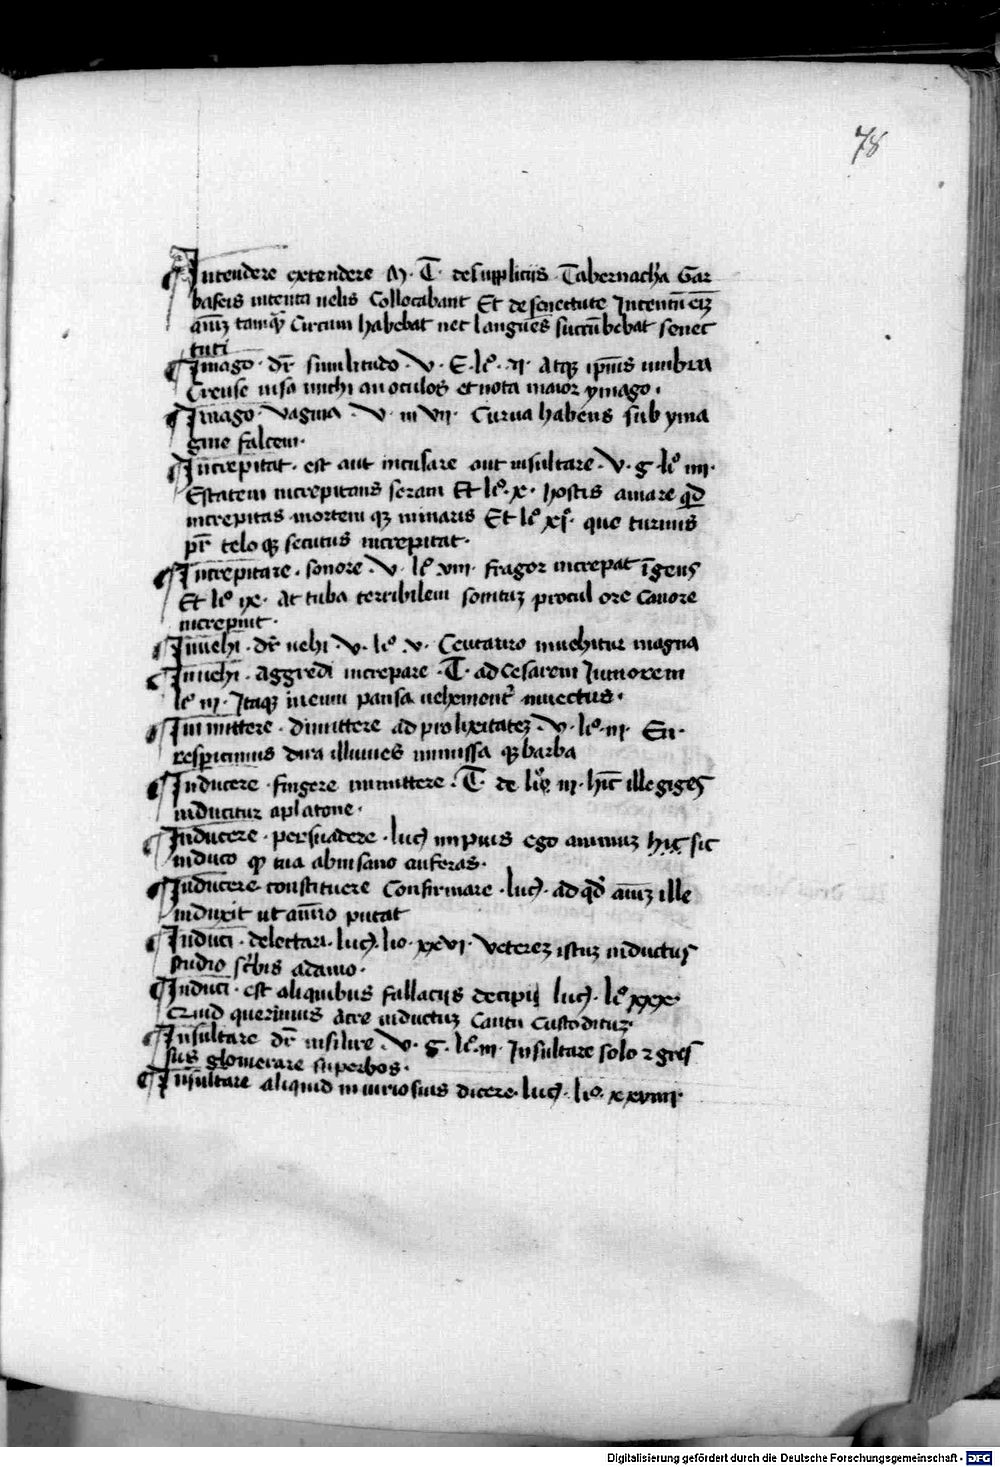 78
Intendere extendere M. T. de supplicijs Tabernacła Gar
baseis intenta uelis Collocabant Et de senectute Intentū eiȝ
aīuȝ tamqȝ Circum habebat nec langues̄ succūbebat senec
tuti
Imago. dr̄ similitudo. V. E. lº. ij. atqȝ ip̄ius umbra
Creuse uisa michi an oculos et nota maior ymago.
Imago. Vagina. V. in vij. Curua habens sub yma
gine falcem.
Increpitat. est aut incusare aut insultare. V. g. lº iiij.
Estatem increpitans seram Et lº. x. hostis amare qd̄
increpitas mortem qȝ minaris Et lº xj. que turnus
pr̄ telo qȝ secutus increpitat.
Increpitare. sonore. V. lº viij. fragor increpat īgens
Et lº ix. At tuba terribilem sonituȝ procul ore Canore
increpuit.
Inuehi. dr̄ uehi. V. lº. v. Centauro inuehitur magna
Inuehi. aggredi increpare. T. ad Cesarem Juniorem
lº iij. Itaqȝ in eum pansa uehement̄ inuectus.
Inmittere. dimittere ad prolixitateȝ. V. lº. iij. En.
respicimus dira illuuies inmissa qȝ barba
Inducere. fingere inmittere. T. de iij. hic̄ ille giges
inducitur a platone.
Inducere. persuadere. luc̄. impius ego animuȝ hic sic
induco qȝ tua ab insano auferas.
Inducere. constituere Confirmare. luc̄. ad qd̄ aīuȝ ille
induxit ut aīmo putat
Induci. delectari. luc̄. lio. xxvi. Vetereȝ istuȝ inductus
studio sc̄bis adamo.
Induci. est aliquibus fallacijs decipi luc̄. lº xxx.
Quid querimus acre inductuȝ Cantu Custoditur
Insultare dr̄ insilire. V. G. lº. iij. Insultare solo ⁊ gres
sus glomerare superbos.
Insultare aliquid iniuriosius dicere. luc̄. lio. xxviiij.
Digitalisierung gefördert durch die Deutsche Forschungsgemeinschaft - DFG